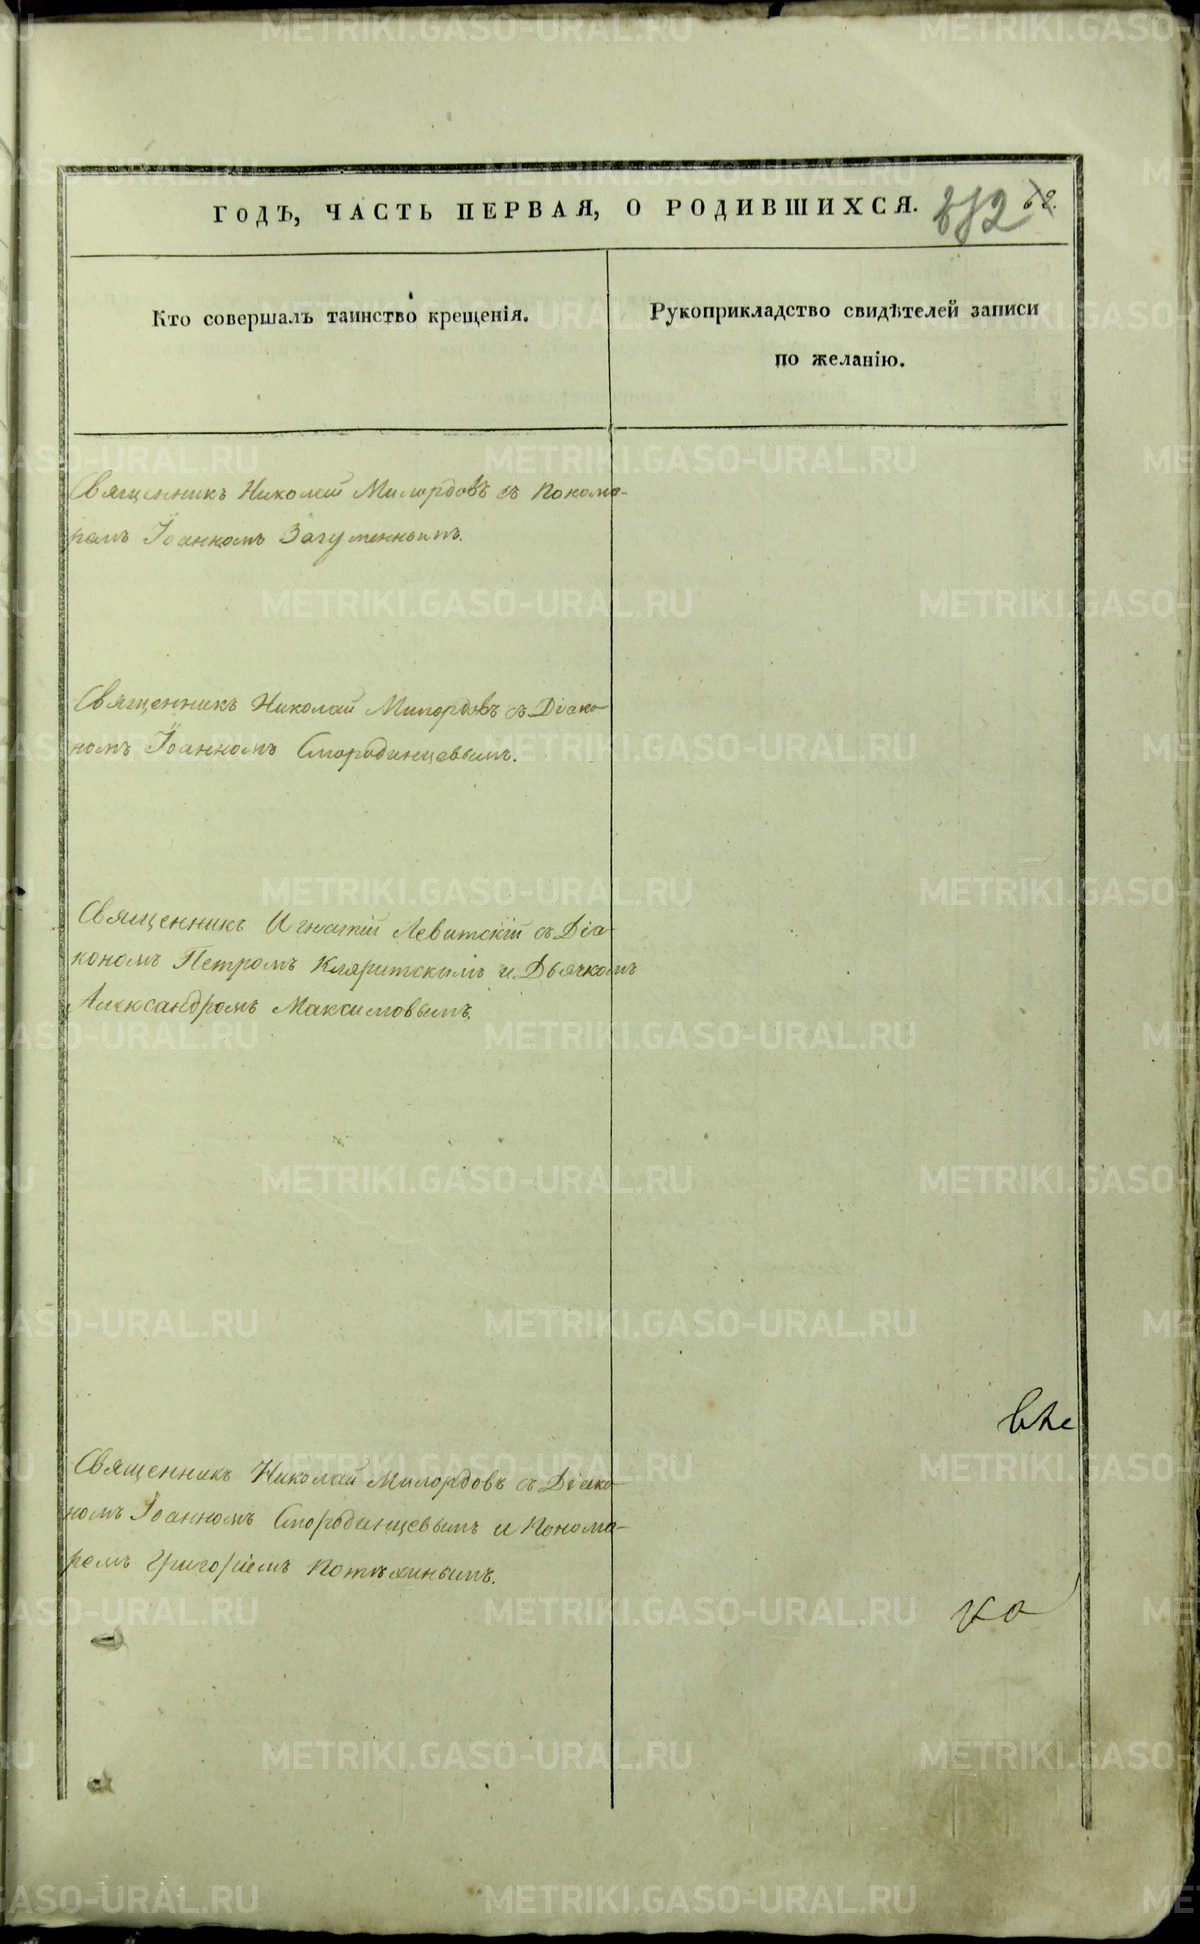 ГОДЪ, ЧАСТЬ ПЕРВАЯ, О РОДИВШИХСЯ.
62.
Кто совершалъ таинство крещенія.
Рукоприкладство свидѣтелей записи
по желанію.
Священникъ Николай Милордовъ съ Понома-
ремъ Іоанномъ Загуменнымъ.
Священникъ Николай Милордовъ съ Діако-
номъ Іоанномъ Смородинцевымъ.
Священникъ Игнатій Левитскій съ Діа-
кономъ Петромъ Кляритскимъ и Дьячкомъ
Александромъ Максимовымъ.
Священникъ Николай Милордовъ съ Діако-
номъ Іоанномъ Смородинцевымъ и Понома-
ремъ Григоріемъ Потѣхинымъ.
METRIKI.GASO-URAL.RU